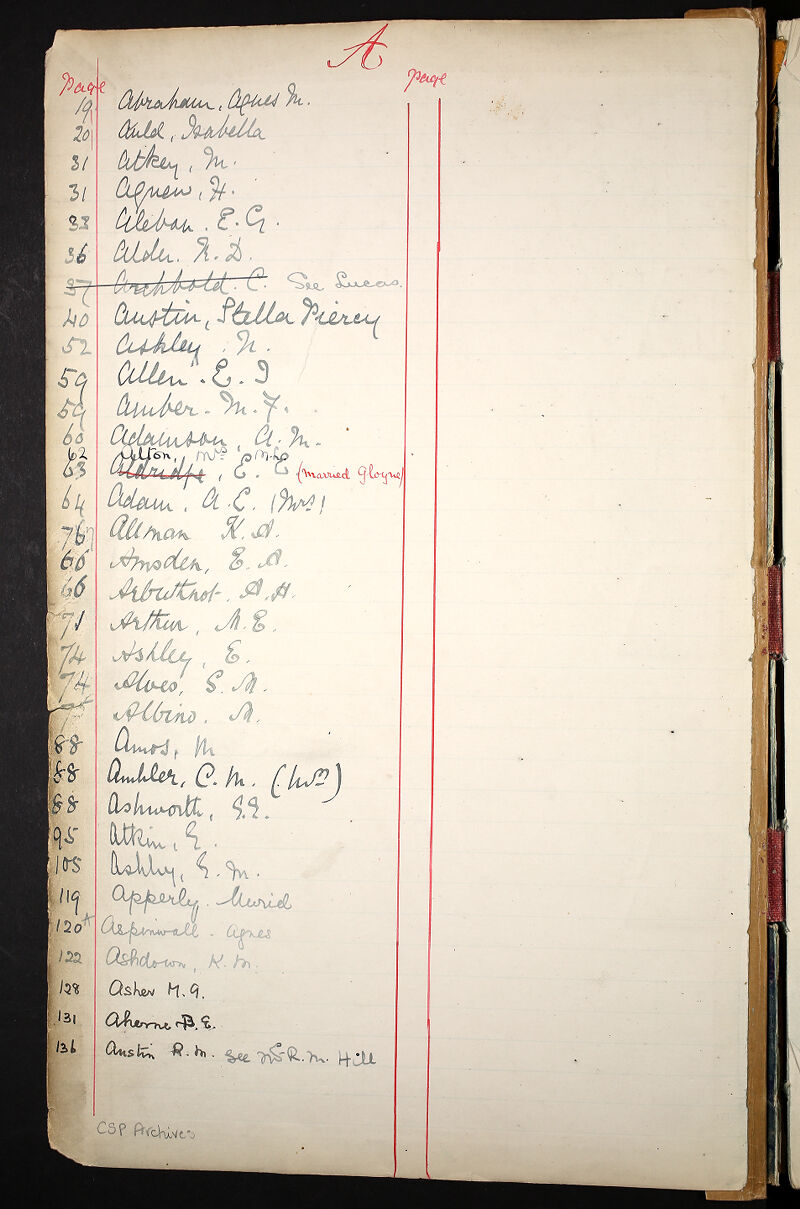 A
Page page
19 Abraham, Agnes M.
20 Auld, Isabella
31 Atkey, M.
31 Agnew, H.
33 E. G.
36 Alder. N. D.
37 Archbold. C. See Lucas.
40 Austin, Stella Piercy
52 Ashley N.
59 Allen. E. I
59 Amber. M. F.
60 Adamson, A. M.
62 Alton, Mrs M.L.
63 Aldridge, E. E (married Gloyne)
64 Adam, A. E. (Mrs)
76 Allman K. A.
66 Amsden, E. A.
66 Arbuthnot. A. H.
71 Arthur, M. E.
74 Ashley, E.
74 Alves, S. M.
Albino. M.
88 Amos, M
88 Ambler, C. M. (Mrs)
88 Ashworth, E.E.
95 Atkin, E.
105 Ashby, E. M.
119 Apperly. Muriel
120A Aspinwall. Agnes
122 Ashdown, K. M.
128 Asher M. G.
131 Aherne B. E.
136 Austin R. M. See Mrs R. M. Hill
CSP Archives